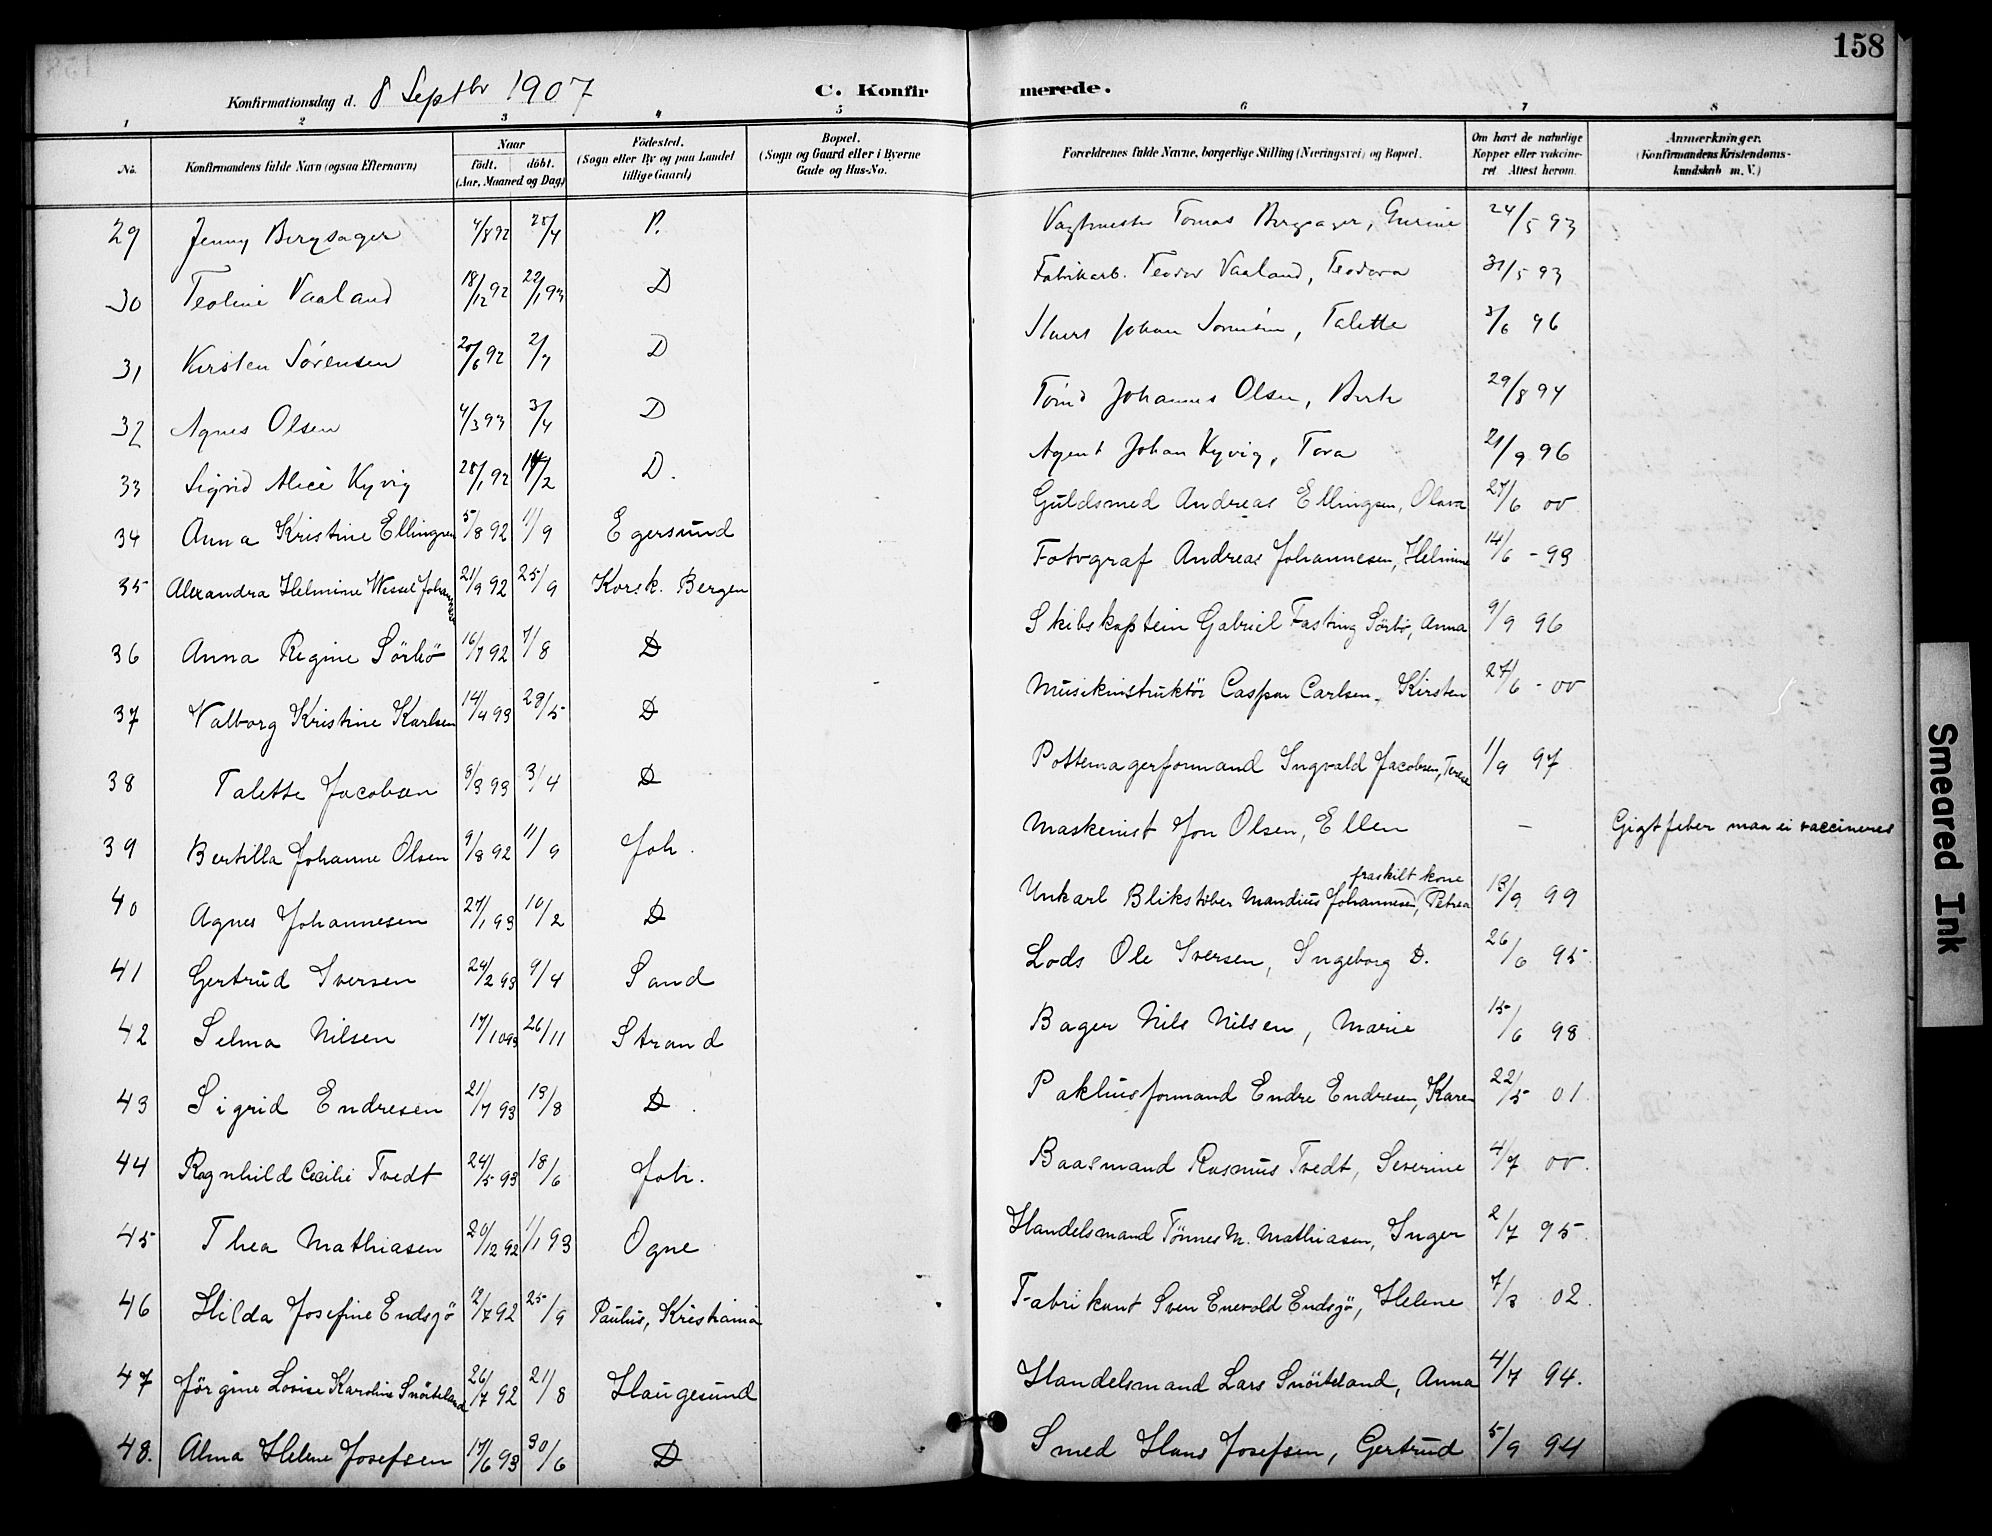 158
Konfirmationsdag d. 8 Septbr 1907 C. Konfirmerede.
1 2 3 4 5 6 7 8
No. Konfirmandens fulde Navn (ogsaa Efternavn) Naar født. døbt. (Aar, Maaned og Dag) Fødested. (Sogn eller By og paa Landet tillige Gaard) Bopæl. (Sogn og Gaard eller i Byerne Gade og Hus-No. Forældrenes fulde Navne, borgerlige Stilling (Næringsvei) og Bopæl. Om havt de naturlige Kopper eller vakcineret Attest herom. Anmærkninger. (Konfirmandens Kristendomskundskab m. V.)
29 Jenny Bergsager 4/8 92 P. Tomas Bergsager, Gurine 24/5 93
30 Teoline Vaaland 18/12 92 22/1 93 D Fabrikarb. Teodor Vaaland, Teodora 31/5 93
31 Kirsten Sörensen 20/6 92 2/7 D Johan Sörensen, Talette 3/6 96
32 Agnes Olsen 4/3 93 3/4 D Johannes Olsen, 29/8 94
33 Sigrid Alice Kyvig 28/1 92 14/2 D. Agent Johan Kyvig, Tora 21/9 96
34 Anna Kristine Ellingsen 5/8 92 11/9 Egersund Guldsmed Andreas Ellingsen, Olava 27/6 00
35 Alexandra Helmine Wessel Johannesen 21/9 92 25/9 Korsk. Bergen Fotograf Andreas Johannesen, Helmine 14/6 - 93
36 Anna Regine Sörbö 16/7 92 7/8 D Skibskaptein Gabriel Fasting Sörbö, Anna 9/9 96
37 Valborg Kristine Karlsen 14/4 93 28/5 D Musikinstruktör Caspar Carlsen, Kirsten 27/6 - 00
38 Talette Jacobsen 8/3 93 3/4 D Pottemagerformand Ingvald Jacobsen, Terese 1/9 97
39 Bertilla Johanne Olsen 9/8 92 11/9 Joh. Maskinist Jon Olsen, Ellen — Gigtfeber maa ei vaccineres
40 Agnes Johannesen 27/1 93 10/2 D Unkarl Blikstöber Mandius Johannesen, fraskilt kone Petrea 13/9 99
41 Gertrud Iversen 24/2 93 9/4 Sand Lods Ole Iversen, Ingeborg D. 26/6 95
42 Selma Nilsen 17/10 93 26/11 Strand Bager Nils Nilsen, Marie 15/6 98
43 Sigrid Endresen 21/7 93 13/8 D. Pakhusformand Endre Endresen, Karen 22/5 01
44 Ragnhild Cecilie Tvedt 24/5 93 18/6 Joh. Baasmand Rasmus Tvedt, Severine 4/7 00.
45 Thea Mathiasen 20/12 92 1/1 93 Ogne Handelsmand Tönnes M. Mathiasen, Inger 2/7 95.
46 Hilda Josefine Endsjö 12/7 92 25/9 Paulus, Kristiania Fabrikant Sven Enevold Endsjö, Helene 7/3 02.
47 Jörgine Lovise Karoline Snöiteland 26/7 92 21/8 Haugesund Handelsmand Lars Snöiteland, Anna 4/7 94.
48. Alma Helene Josefsen 17/6 93 30/6 D Smed Hans Josefsen, Gertrud 5/9 94
Smeared Ink